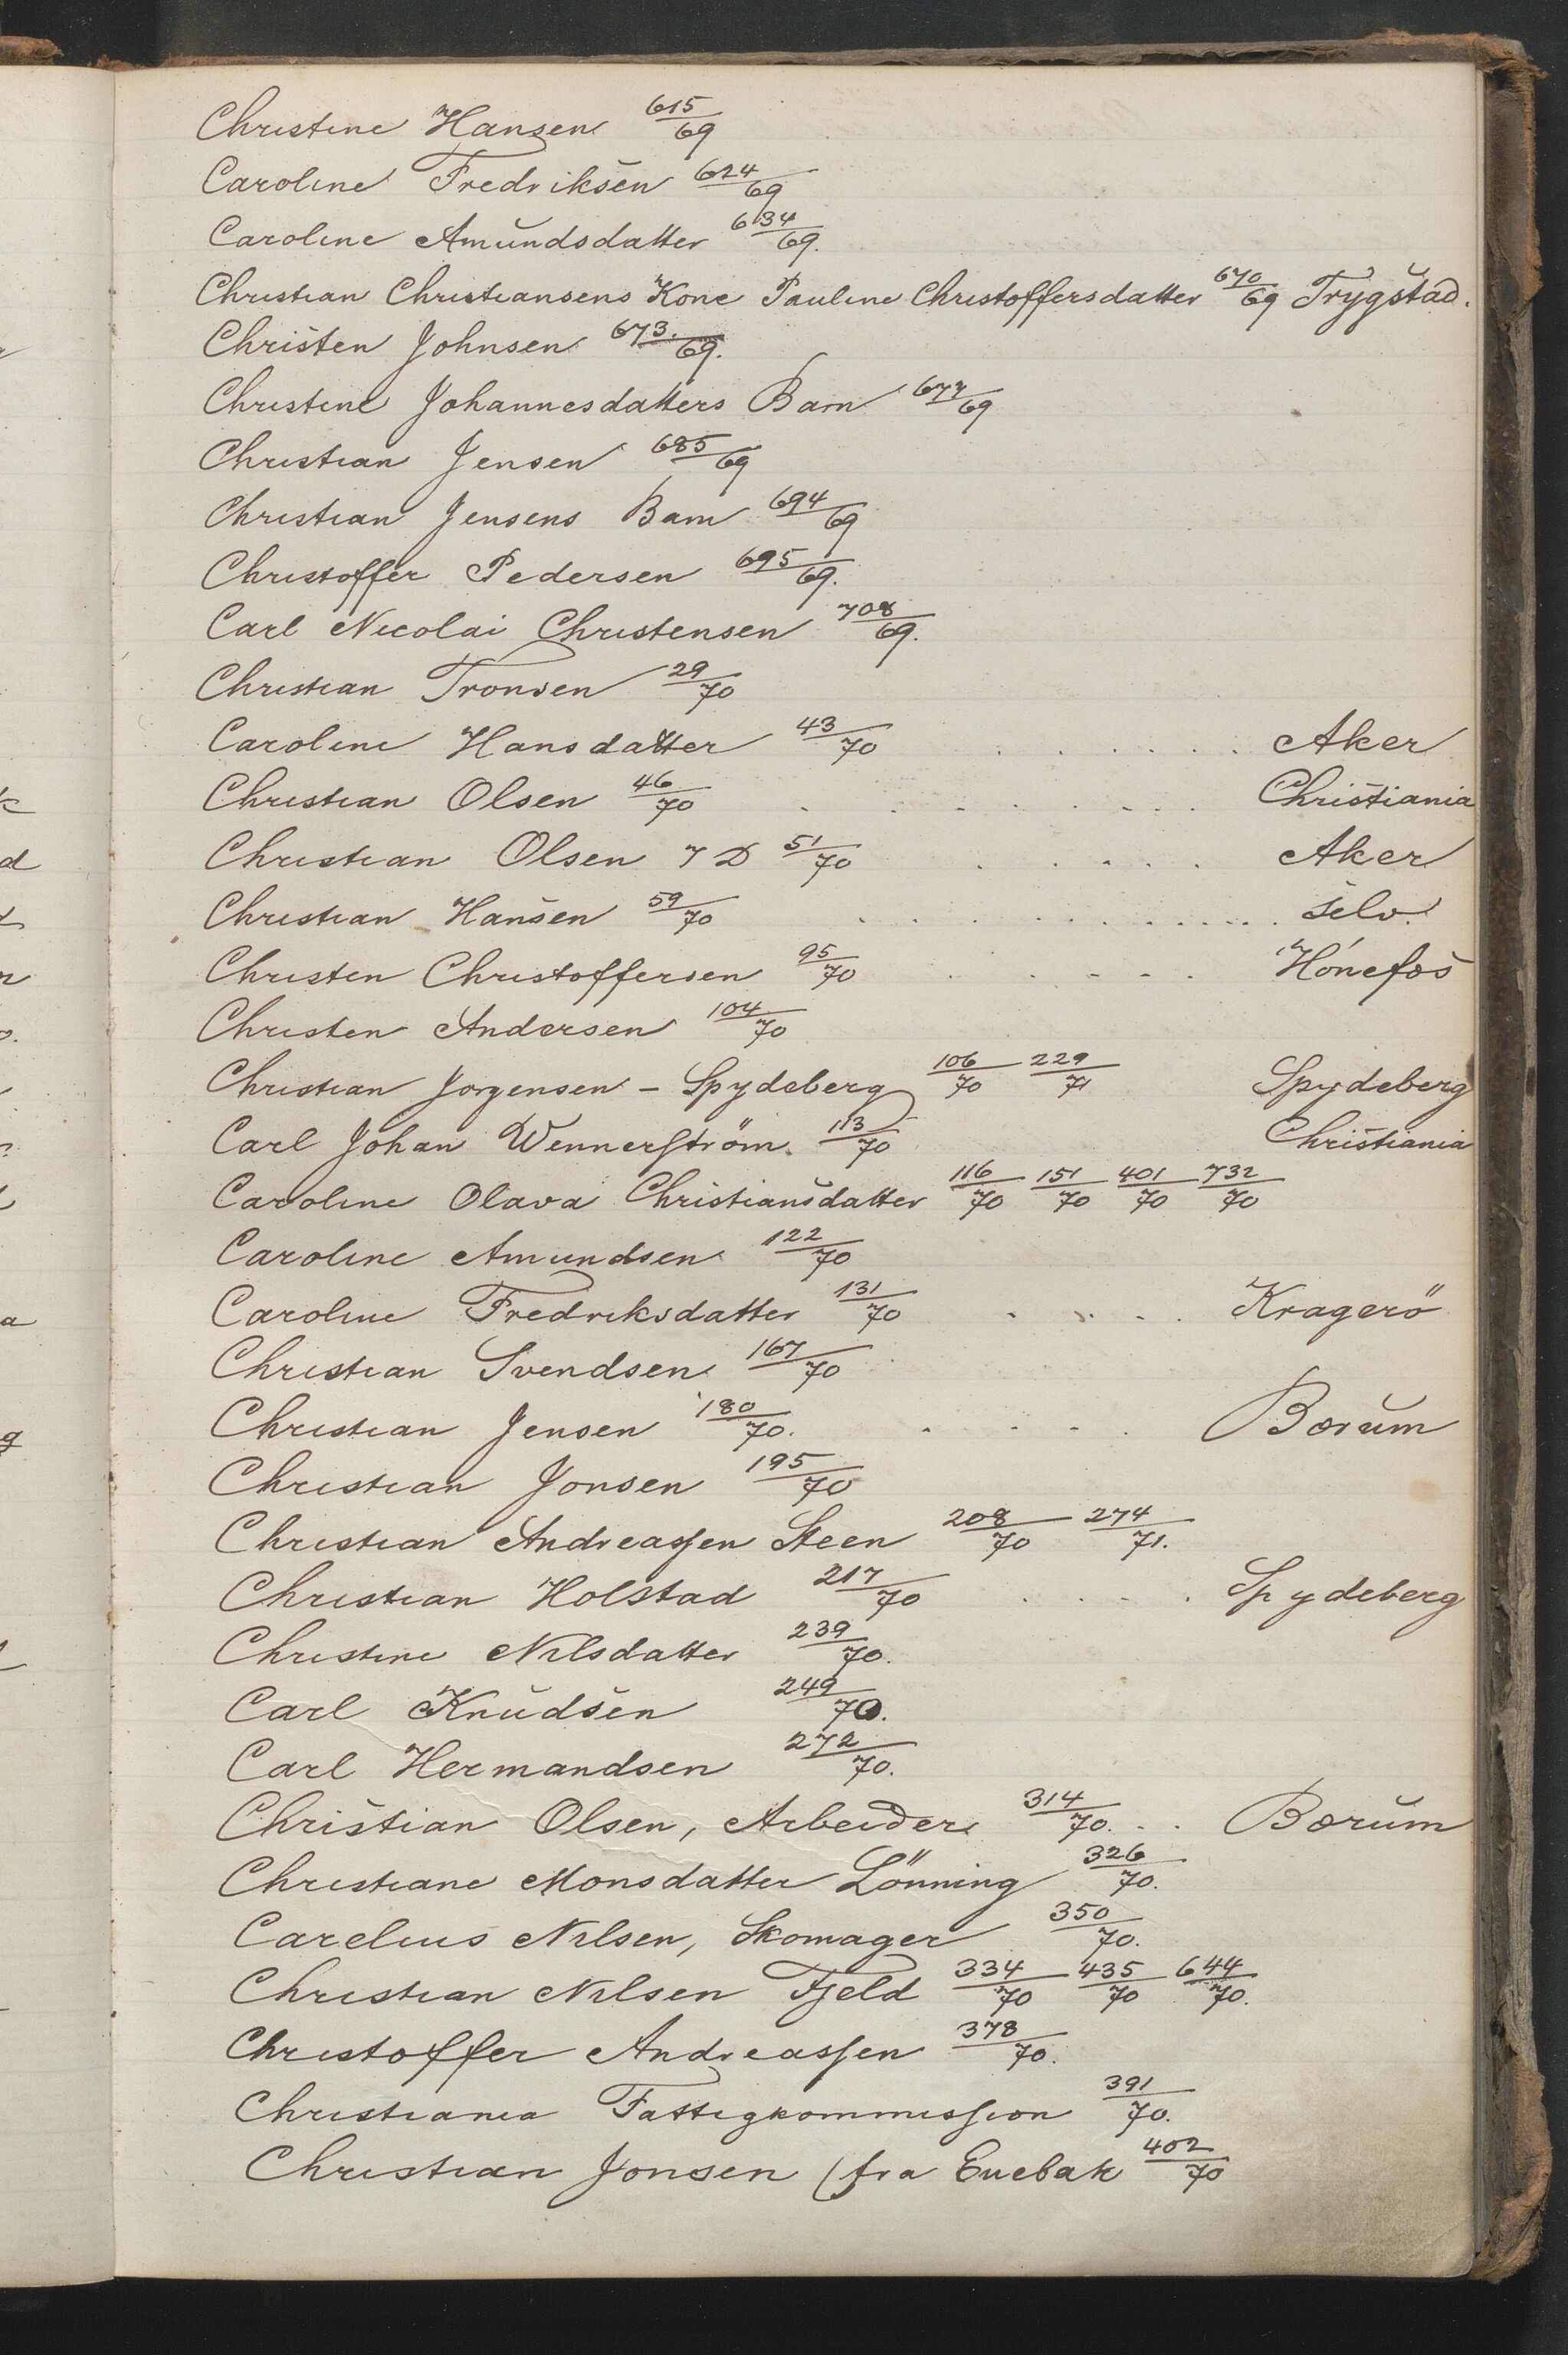 Christine Hansen 615/69
Caroline Fredriksen 624/69
Caroline Amundsdatter 634/69.
Christian Christiansens Kone Pauline Christoffersdatter 670/69 Trygstad.
Christen Johnsen 673./69.
Christine Johannesdatters Barn 677/69
Christian Jensen 685/69
Christian Jensens Barn 694/69
Christoffer Pedersen 695/69.
Carl Nicolai Christensen 708/69.
Christian Tronsen 29/70
Caroline Hansdatter 43/70 . . . . . . Aker
Christian Olsen 46/70 . . . . . . . Christiania
Christian Olsen 7 D 51/70 . . . . . Aker
Christian Hansen 59/70 . . . . . . . . . . selv.
Christen Christoffersen 95/70 . . . . . Hönefos
Christen Andersen 104/70
Christian Jorgensen - Spydeberg 106/70 229/71 Spydeberg
Carl Johan Wennerström. 113/70 Christiania
Caroline Olava Christiansdatter 116/70 151/70 401/70 732/70
Caroline Amundsen 122/70
Caroline Fredriksdatter 131/70 . . . . Kragerö
Christian Svendsen 167/70
Christian Jensen 180/70. . . . . . Bærum
Christian Jonsen 195/70
Christian Andreassen Steen 208/70 274/71.
Christian Holstad 217/70 . . . . Spydeberg
Christine Nilsdatter 239/70.
Carl Knudsen 249/70.
Carl Hermandsen 272/70.
Christian Olsen, Arbeider 314/70. . . Bærum
Christiane Monsdatter Lönning 326/70.
Carelius Nilsen, Skomager 350/70.
Christian Nilsen Fjeld 334/70 435/70 644/70.
Christoffer Andreassen 378/70.
Christiania Fattigkommission 391/70.
Christian Jonsen (fra Enebak 402/70